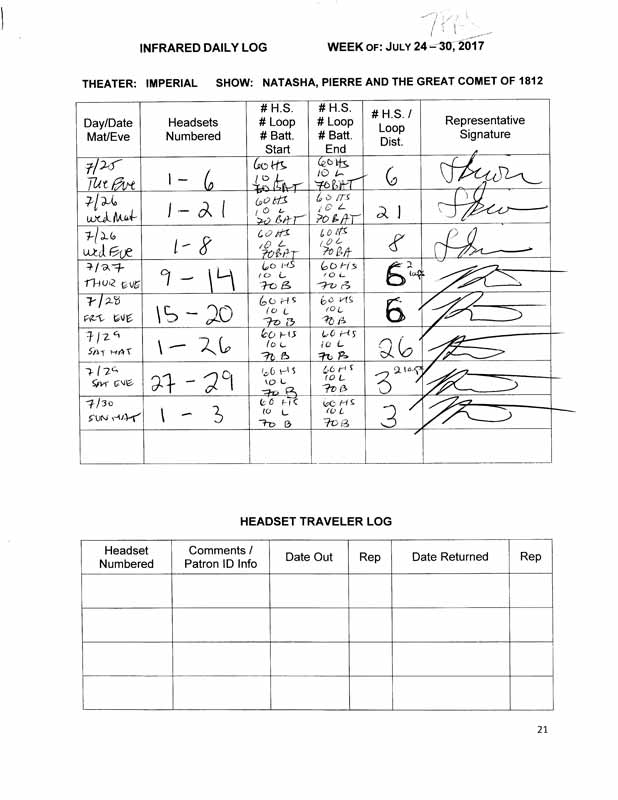 INFRARED DAILY LOG WEEK OF: JULY 24 – 30, 2017
THEATER: IMPERIAL SHOW: NATASHA, PIERRE AND THE GREAT COMET OF 1812
Day/Date Mat/Eve | Headsets Numbered | # H.S. # Loop # Batt. Start | # H.S. # Loop # Batt. End | # H.S. / Loop Dist. | Representative Signature
7/25 Tue Eve | 1 - 6 | 60 HS 10 L 70 BAT | 60 HS 10 L 70 BAT | 6
7/26 Wed Mat | 1 - 21 | 60 HS 10 L 70 BAT | 60 HS 10 L 70 BAT | 21
7/26 Wed Eve | 1 - 8 | 60 HS 10 L 70 BAT | 60 HS 10 L 70 BA | 8
7/27 THUR EVE | 9 - 14 | 60 HS 10 L 70 B | 60 HS 10 L 70 B | 6 2 loops
7/28 FRI EVE | 15 - 20 | 60 HS 10 L 70 B | 60 HS 10 L 70 B | 6
7/29 SAT MAT | 1 - 26 | 60 HS 10 L 70 B | 60 HS 10 L 70 B | 26
7/29 SAT EVE | 27 - 29 | 60 HS 10 L 70 B | 60 HS 10 L 70 B | 3 2 loops
7/30 SUN MAT | 1 - 3 | 60 HS 10 L 70 B | 60 HS 10 L 70 B | 3
HEADSET TRAVELER LOG
Headset Numbered | Comments / Patron ID Info | Date Out | Rep | Date Returned | Rep
21